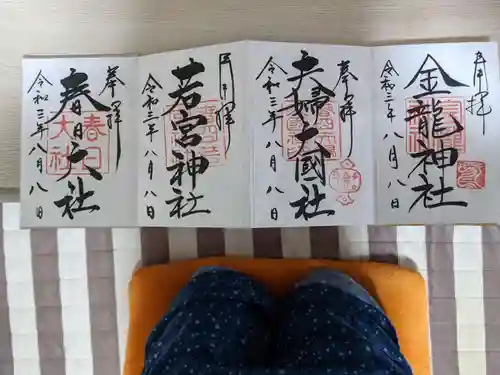 奉拝
金龍神社
令和三年八月八日
奉拝
夫婦大國社
令和三年八月八日
奉拝
若宮神社
令和三年八月八日
奉拝
春日大社
春日
大社
令和三年八月八日